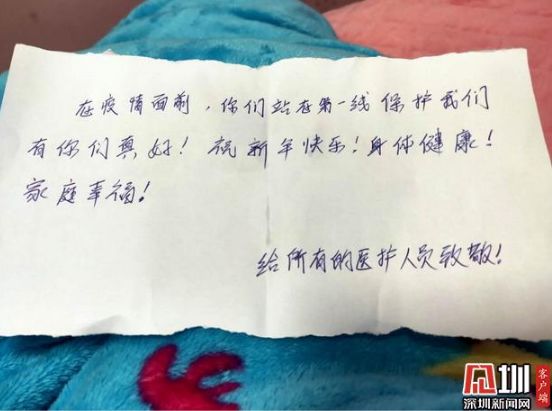 在疫情面前，你们站在第一线保护我们
有你们真好！祝新年快乐！身体健康！
家庭幸福！
给所有的医护人员致敬！
深圳新闻网
客户端